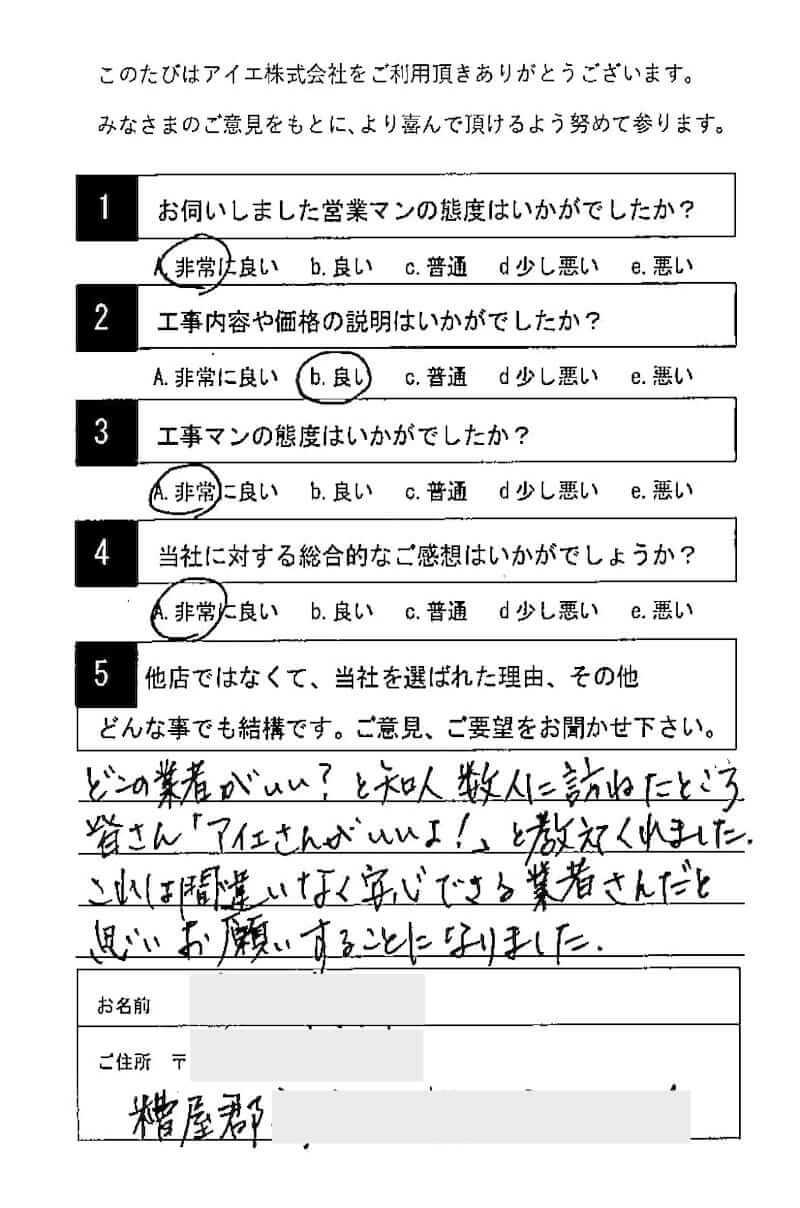 このたびはアイエ株式会社をご利用頂きありがとうございます。
みなさまのご意見をもとに、より喜んで頂けるよう努めて参ります。
1 お伺いしました営業マンの態度はいかがでしたか？
A.非常に良い b.良い c.普通 d少し悪い e.悪い
2 工事内容や価格の説明はいかがでしたか？
A.非常に良い b.良い c.普通 d少し悪い e.悪い
3 工事マンの態度はいかがでしたか？
A.非常に良い b.良い c.普通 d少し悪い e.悪い
4 当社に対する総合的なご感想はいかがでしょうか？
A.非常に良い b.良い c.普通 d少し悪い e.悪い
5 他店ではなくて、当社を選ばれた理由、その他
どんな事でも結構です。ご意見、ご要望をお聞かせ下さい。
どこの業者がいい？と知人数人に訪ねたところ
皆さん「アイエさんがいいよ！」と教えてくれました.
これは間違いなく安心できる業者さんだと
思いお願いすることになりました.
お名前
ご住所 〒
糟屋郡